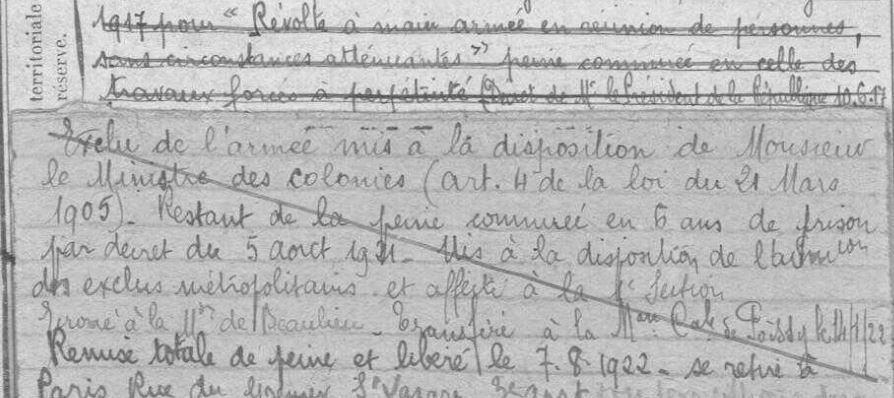 territoriale
réserve.
1917 pour " Révolte à main armée en réunion de personnes,
sans circonstances atténuantes " peine commuée en celle des
travaux forcés à perpétuité (Décret de Mr le Président de la République 10.6.17
Exclu de l'armée mis à la disposition de Monsieur
le Ministre des colonies (art. 4 de la loi du 21 Mars
1905). Restant de la peine commuée en 6 ans de prison
par décret du 5 aout 1921. Mis à la disposition de
des exclus métropolitains et affecté à la Section
Ecroué à la Mon de Beaulieu. Transféré à la Mon Cale de Poissy le 14/1/22
Remise totale de peine et libéré le 7.8.1922. se retire à
Paris Rue du